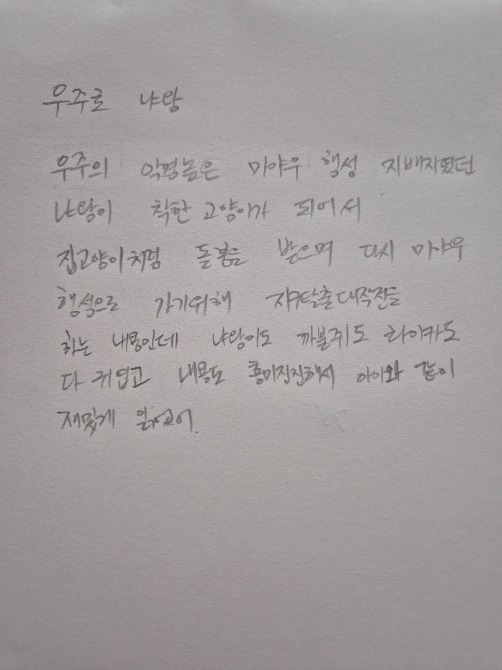 우주로 냐앙
우주의 악평높은 미야우 행성 지배자였던
냐앙이 착한 고양이가 되어서
집고양이처럼 돌봄을 받으며 다시 미야우
행성으로 가기위해 지구탈출대작전을
하는 내용인데 냐앙이도 까불쥐도 라이카도
다 귀엽고 내용도 흥미진진해서 아이와 같이
재밌게 읽었어.